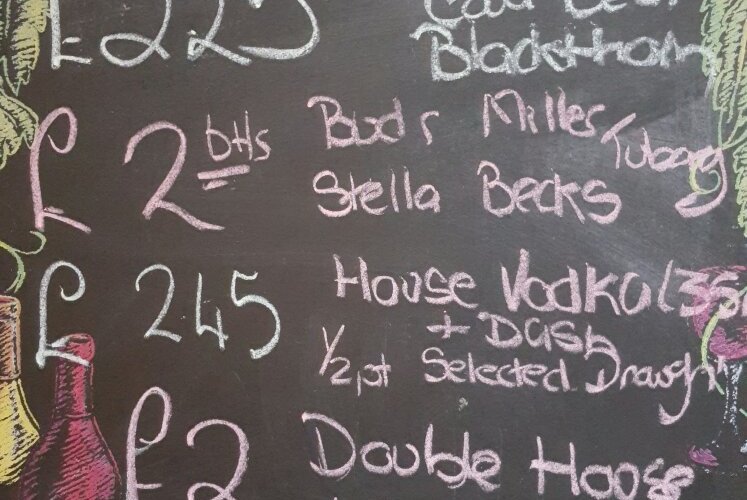 £225
Blackthorn
£2 btls Buds Millers Tuborg
Stella Becks
£245 House Vodka (35
+ Dash
1/2 pt Selected Draugh
£2 Double House